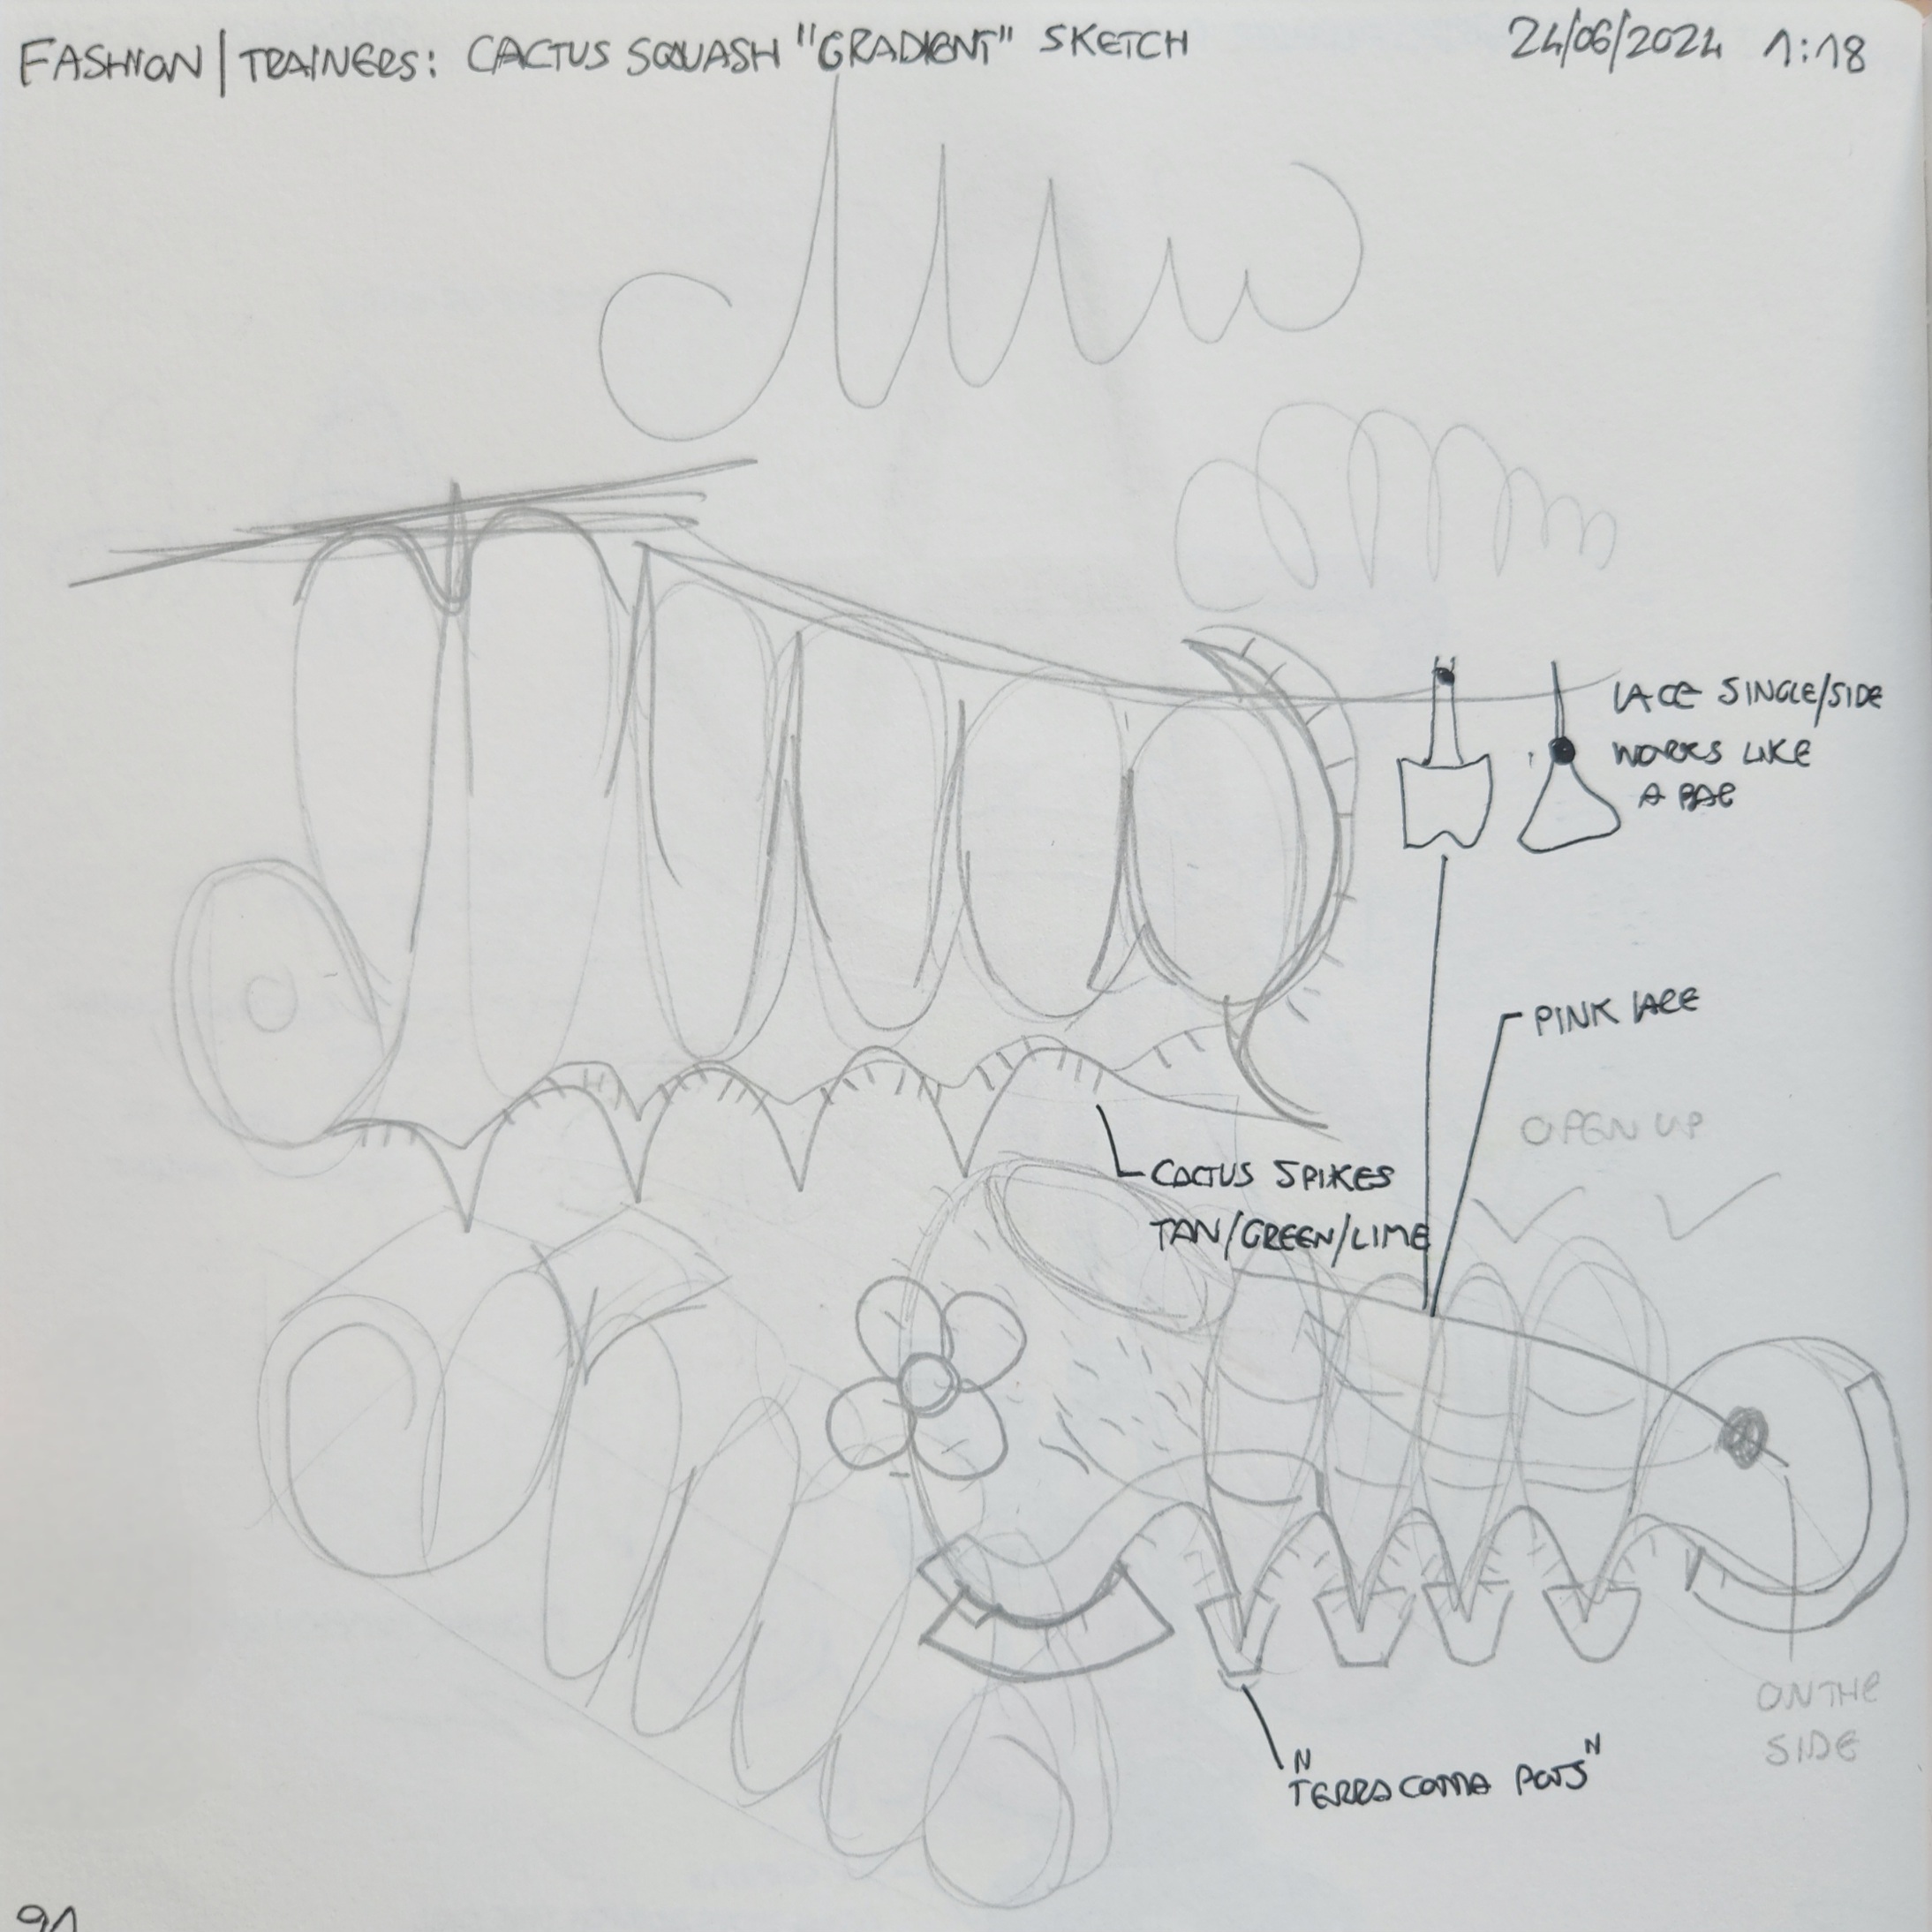 FASHION | TRAINERS: CACTUS SQUASH "GRADIENT" SKETCH
24/06/2024 1:18
LACE SINGLE/SIDE
WORKS LIKE
A BAG
PINK LACE
OPEN UP
CACTUS SPIKES
TAN/GREEN/LIME
ON THE
SIDE
"TERRACOTTA POTS"
91